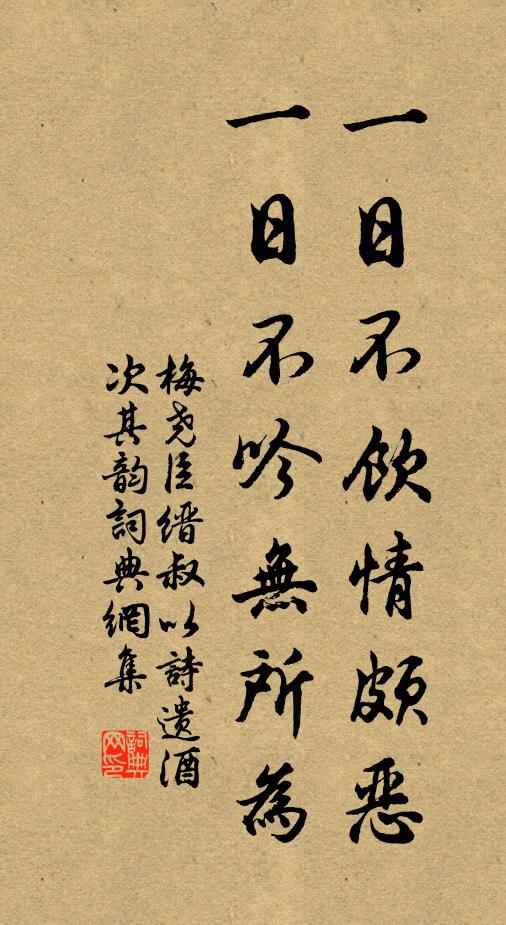 一日不飲情頗惡
一日不吟無所為
梅堯臣缙叔以詩遺酒
次其韵詞典網集
詞典
网印